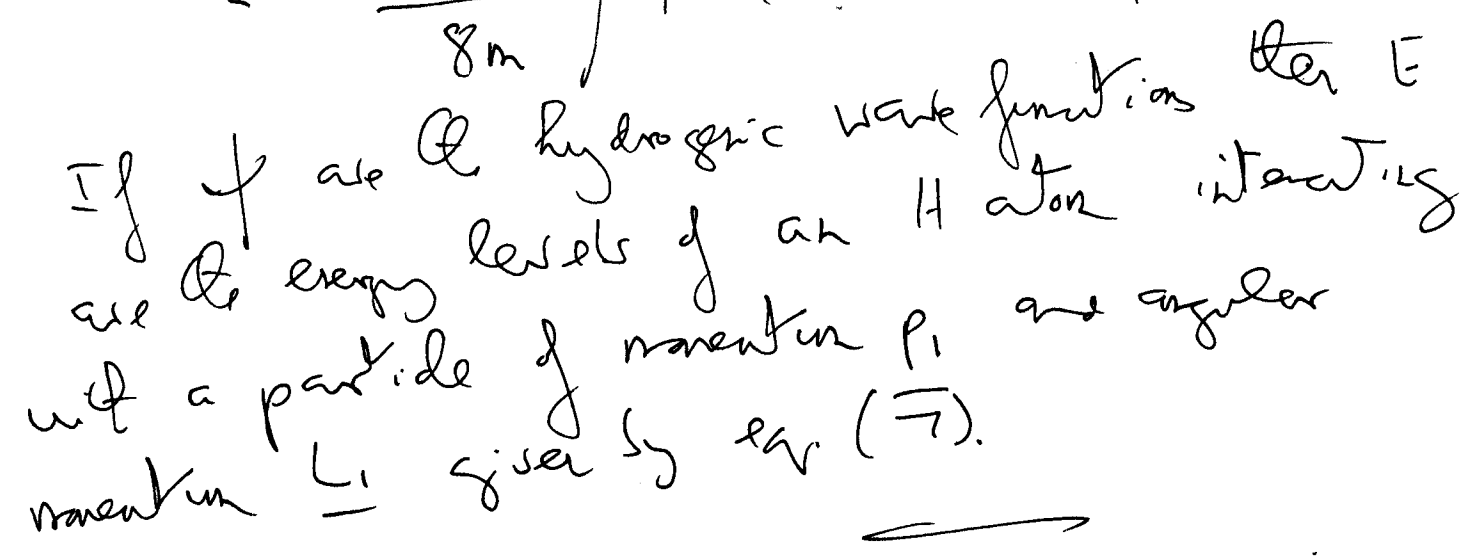 8m
If ψ are the hydrogenic wavefunctions then E
are the energy levels of an H atom interacting
with a particle of momentum p1 and angular
momentum L1 given by eq. (7).